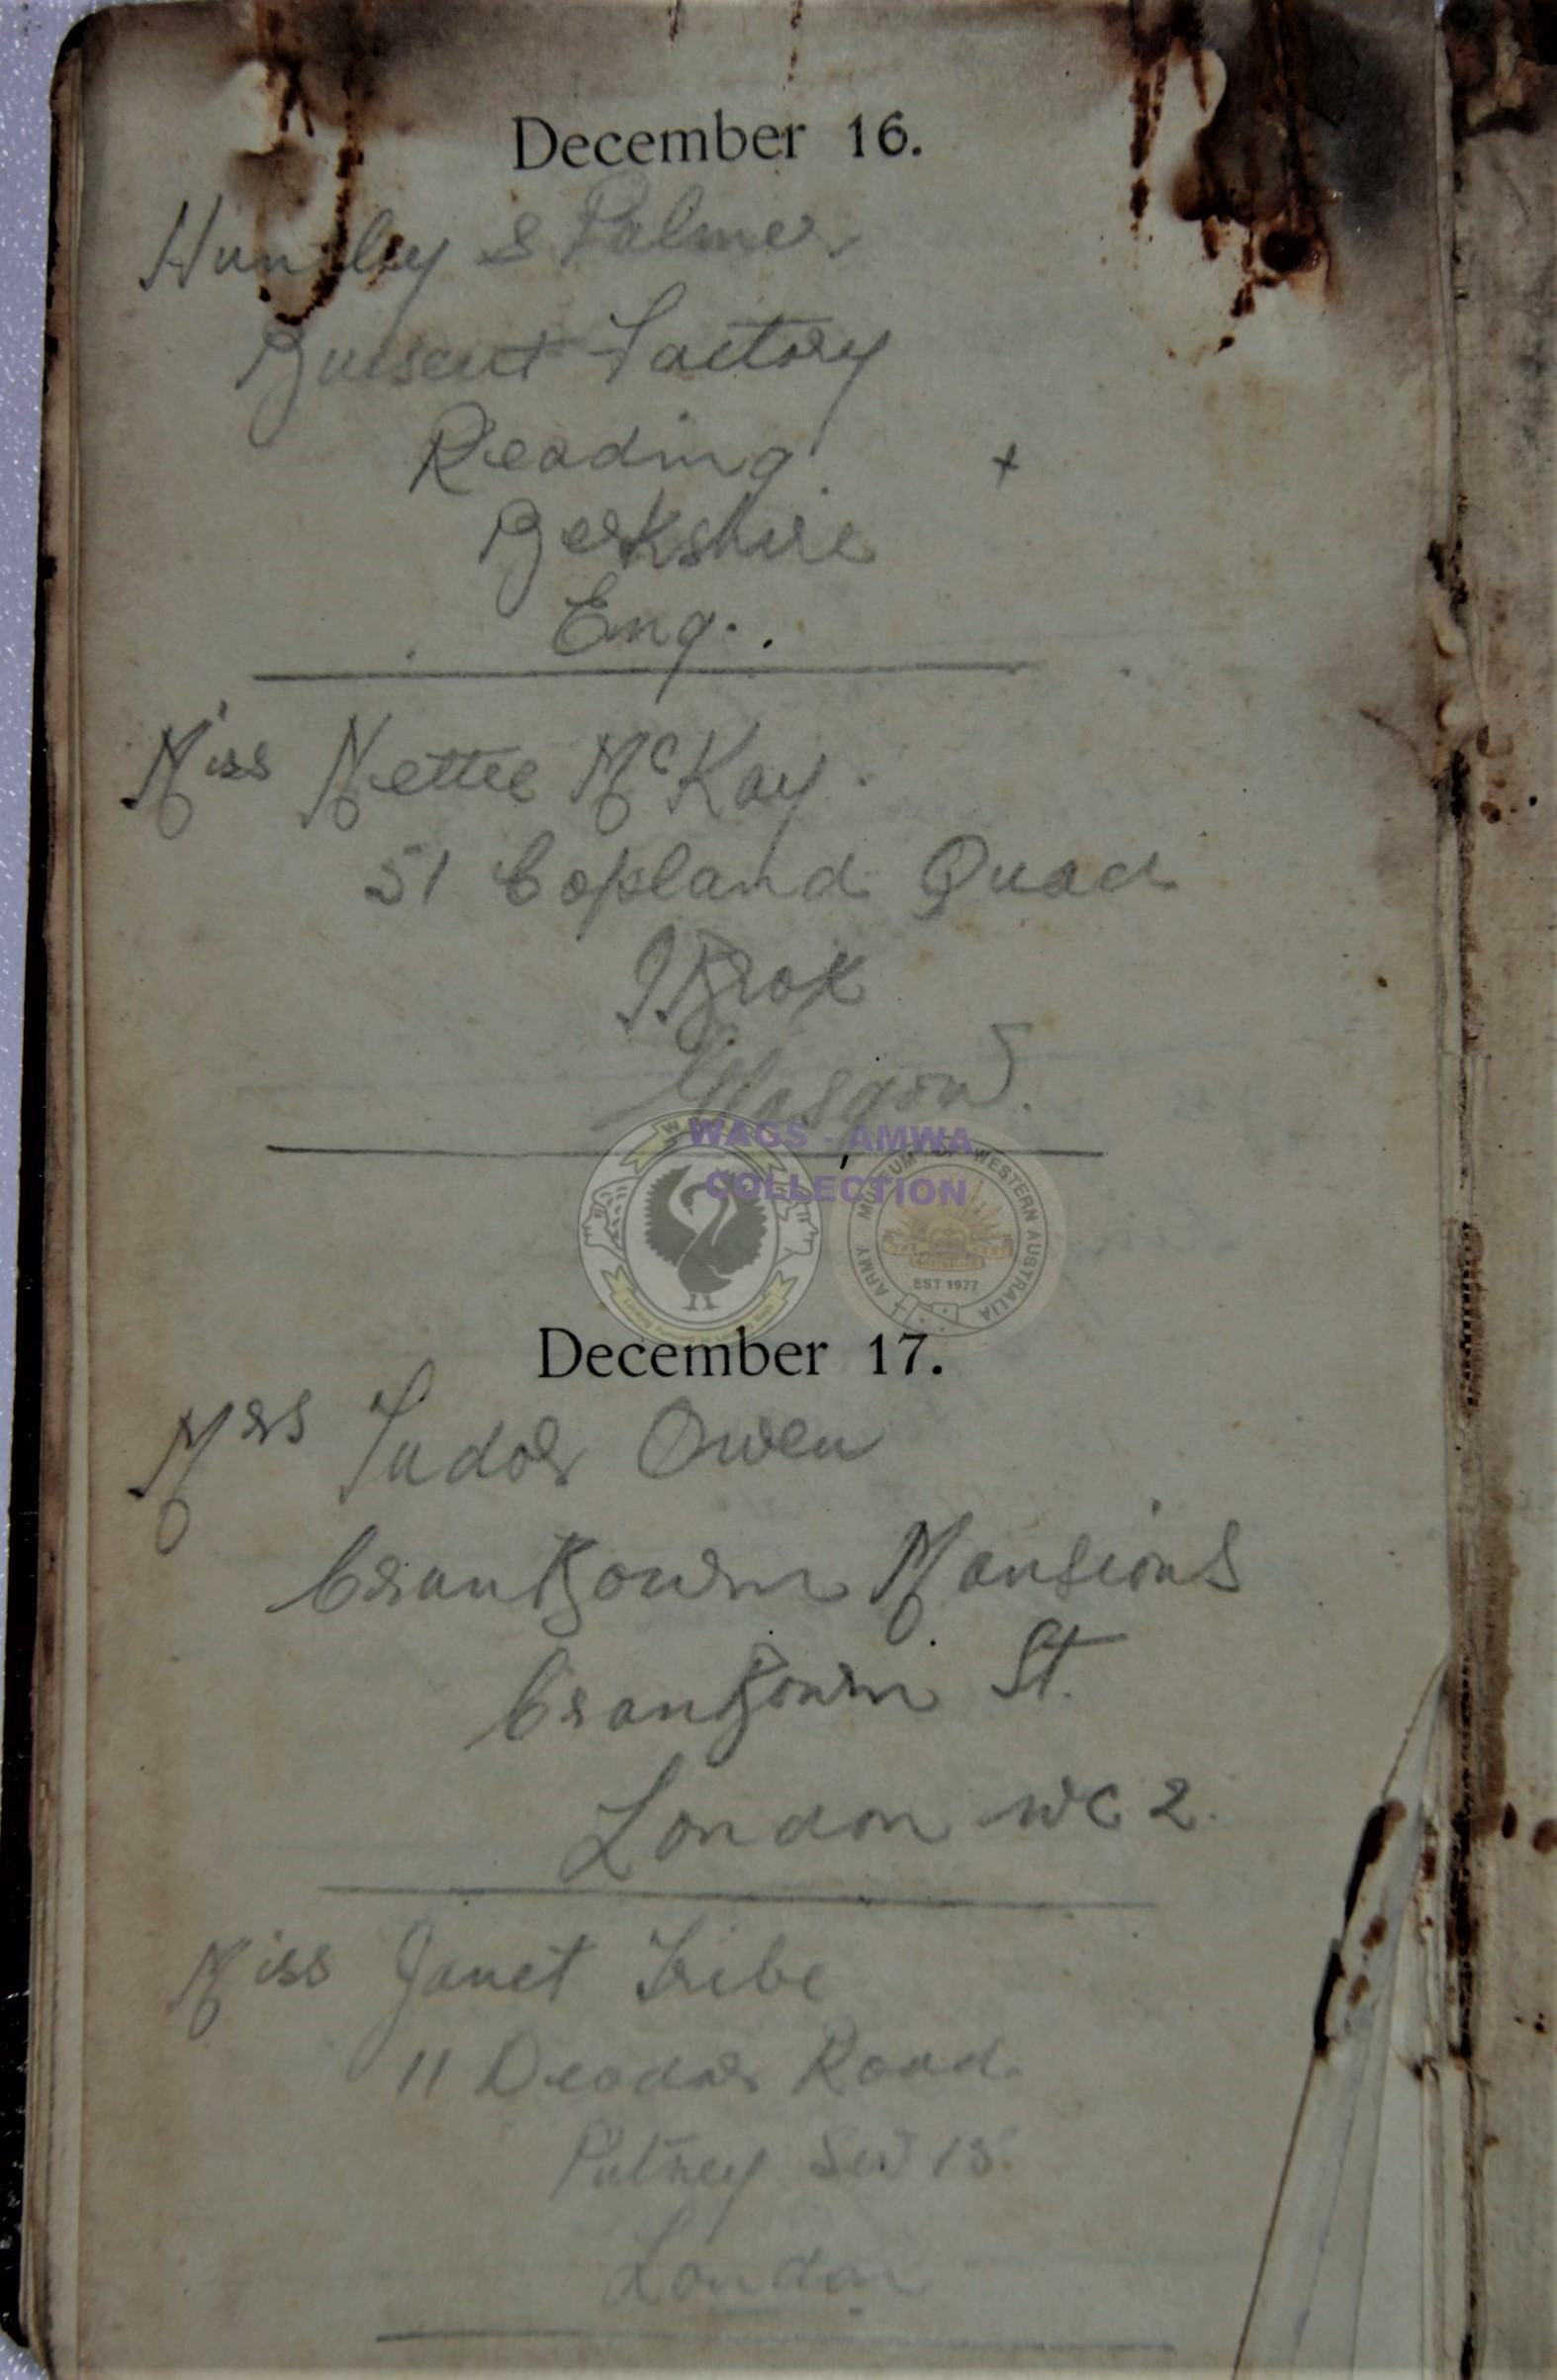 December 16.
Huntley & Palmer
Buiscut Factory
Reading +
Berkshire
Eng.
Miss Nettie McKay.
51 Copland Quad
IBrox
Glasgow.
WAGS - AMWA
COLLECTION
ARMY MUSEUM OF WESTERN AUSTRALIA
EST 1977
December 17.
Mrs Tudor Owen
CranBourn Mansions
CranBourn St.
London WC 2.
Miss Janet Tribe
11 Deodar Road.
Putney SW 15.
London